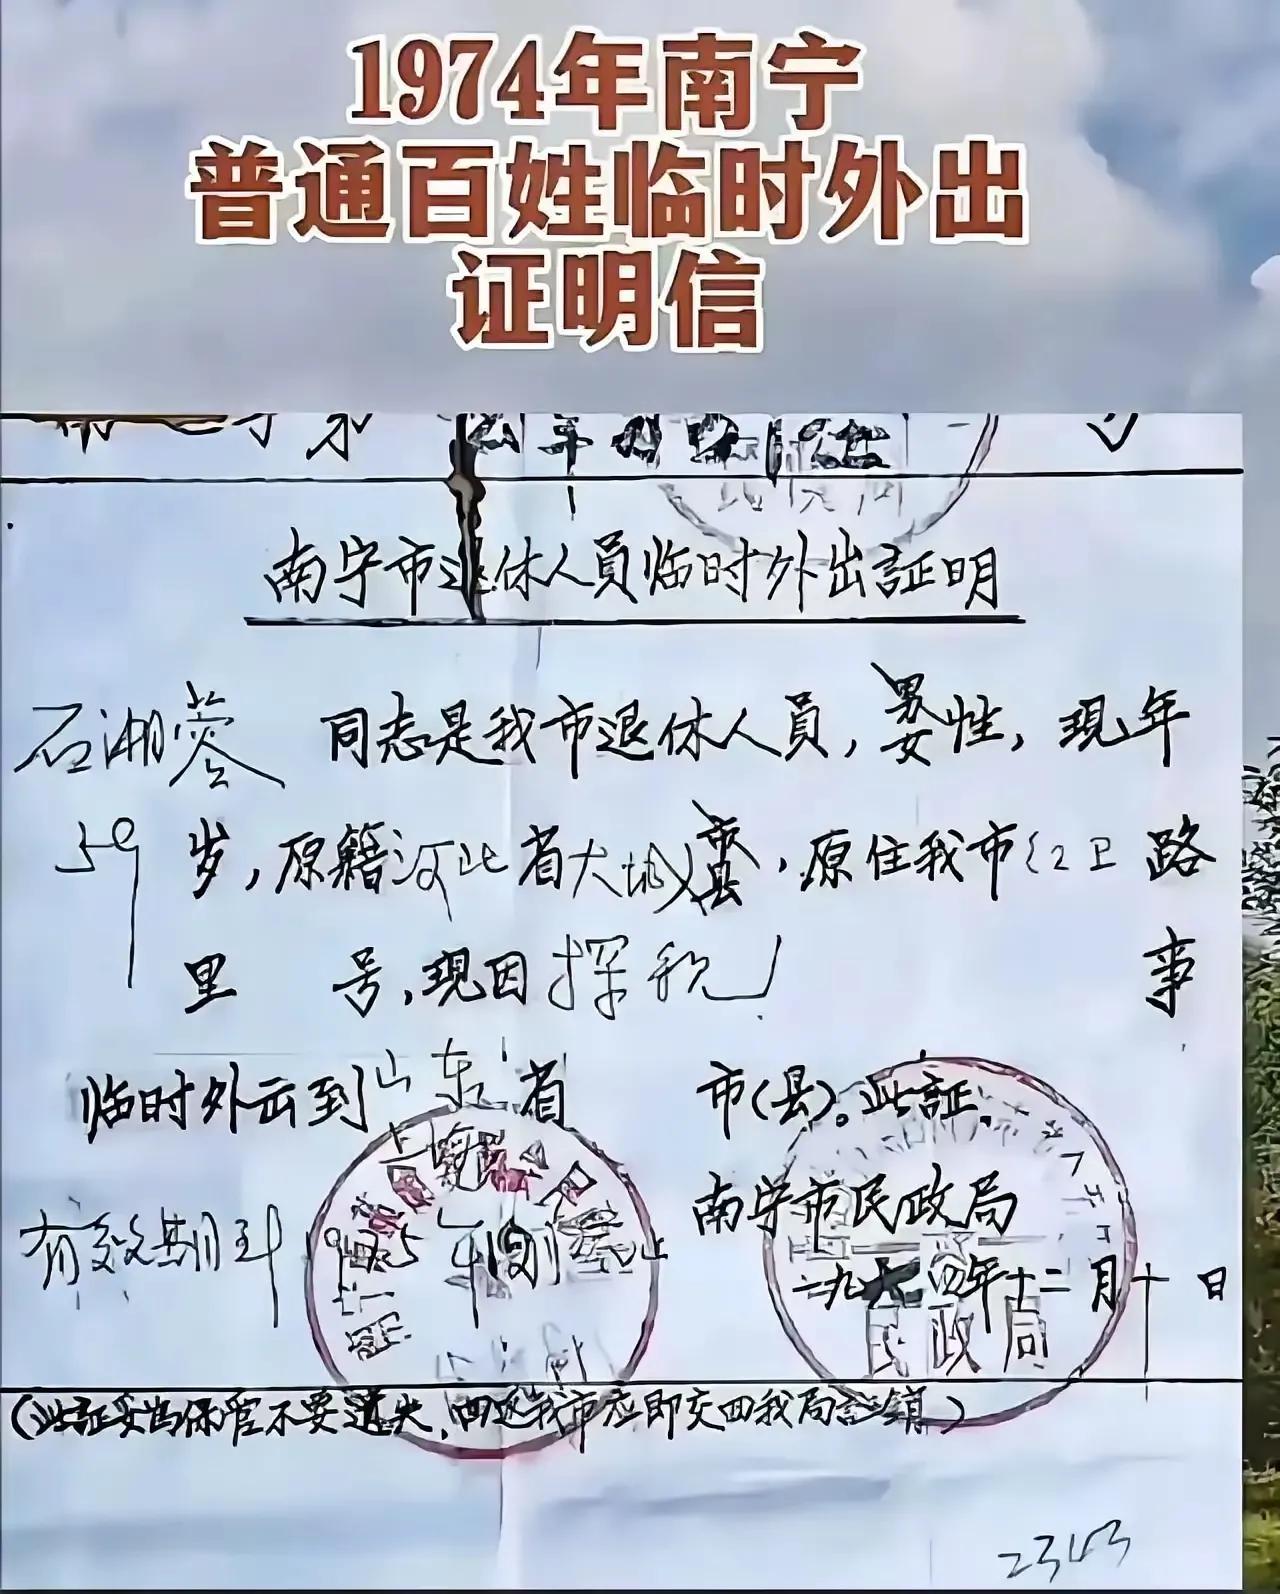 1974年南宁
普通百姓临时外出
证明信
南宁市退休人员临时外出証明
石湘蓉 同志是我市退休人员，男女性，现年
59岁，原籍河北省大城市县，原住我市红卫路
里 号，现因探亲 事
临时外出到山东省 市（县）。此証。
南宁市民政局
有效期到1975年 月 止
一九七四年十二月十日
民政局
（此証妥为保管不要遗失，回返我市应即交回我局註销）
2343